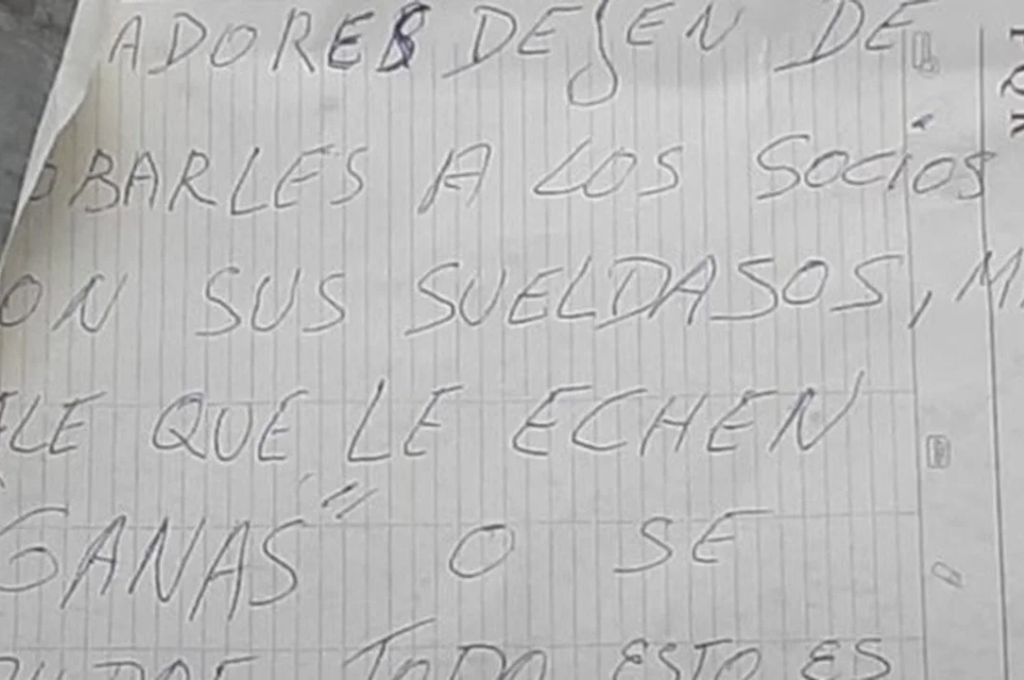 ADORES DEJEN DE
OBARLES A LOS SOCIOS
ON SUS SUELDASOS, M
ELE QUE LE ECHEN
GANAS" O SE
TODO ESTO ES